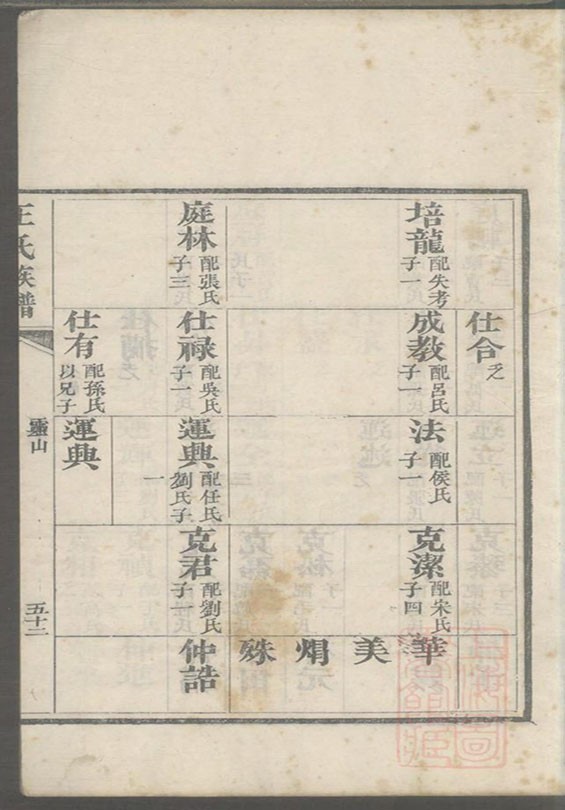 培龍 配失考 子一
庭林 配張氏 子三
仕合 乏
成教 配呂氏 子一
仕祿 配吳氏 子一
仕有 配孫氏 以兄子
法 配侯氏 子一
運興 配任氏 劉氏子一
運興
克潔 配宋氏 子四
克君 配劉氏 子一
華
美
焆
殊
仲誥
王氏族譜
靈山
五十二